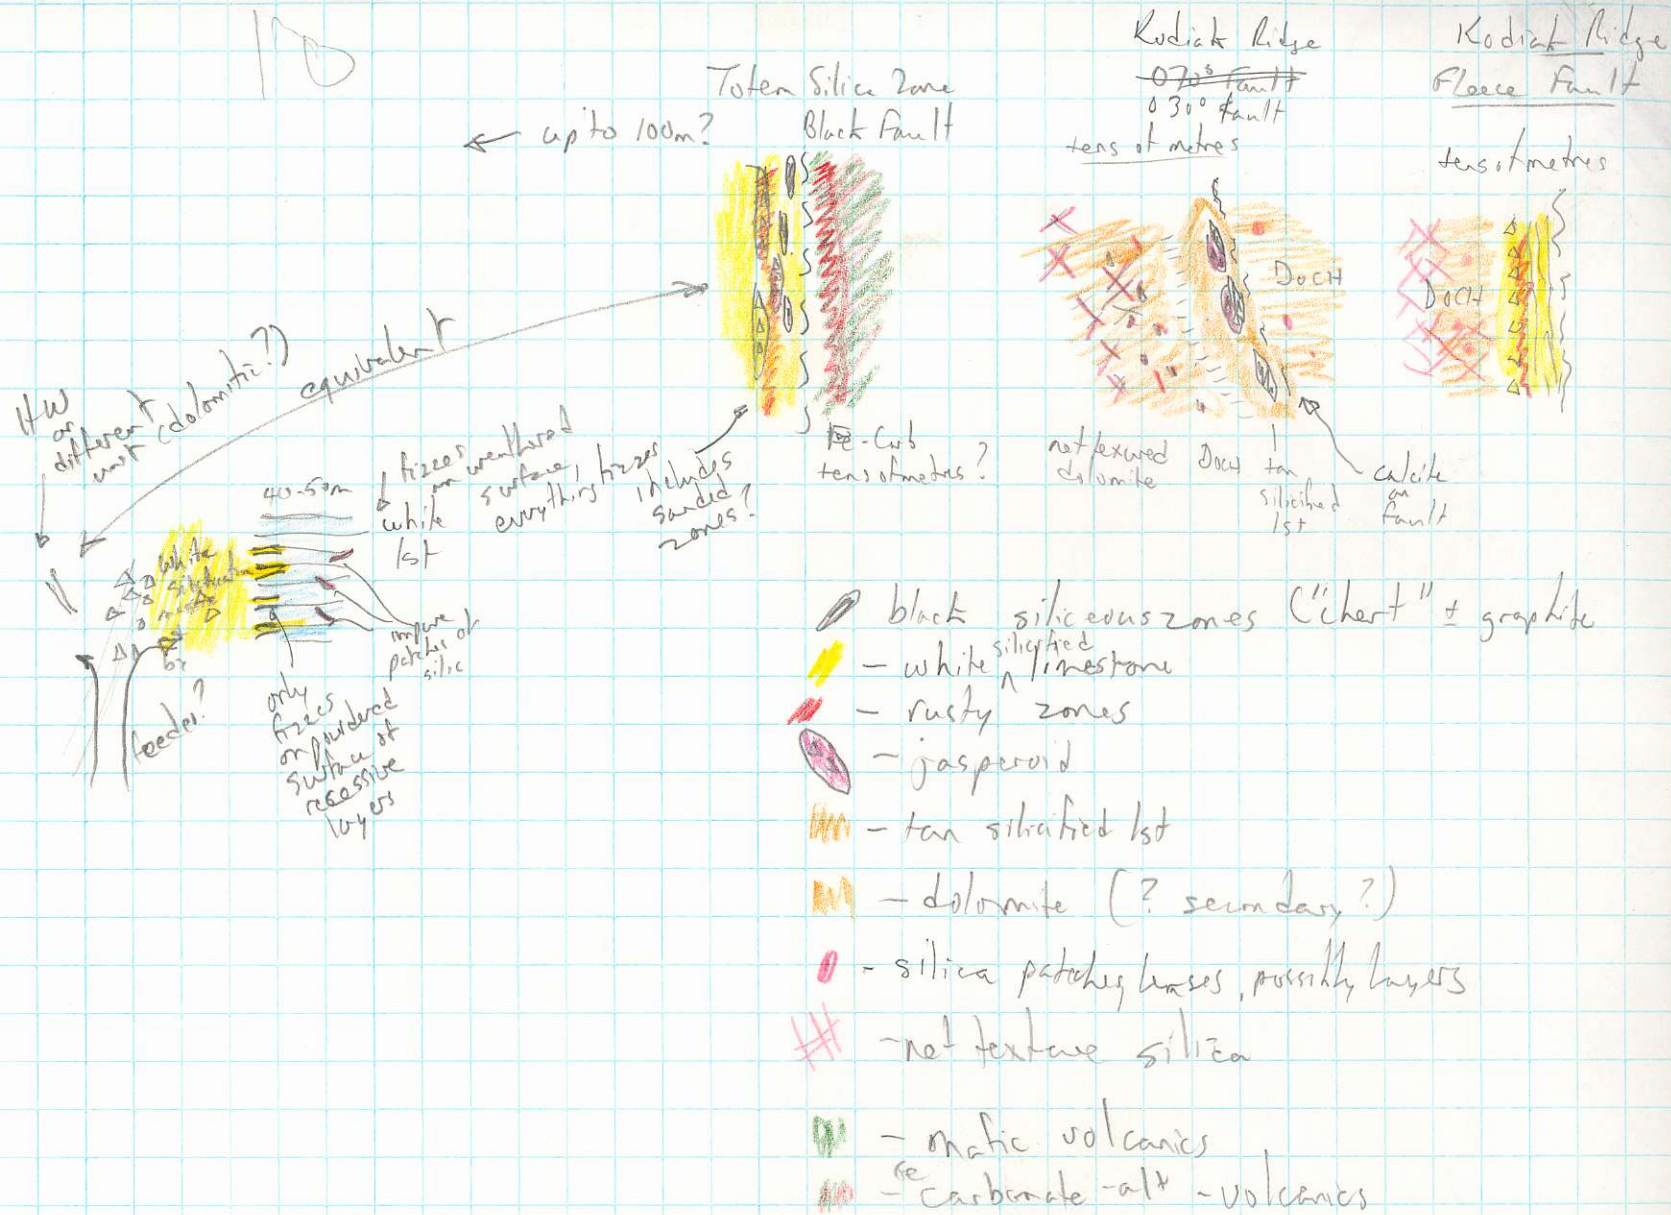 Totem Silica Zone
Black Fault
← up to 100m?
Kodiak Ridge
070° Fault
030° Fault
tens of metres
Kodiak Ridge
Fleece Fault
tens of metres
DOCH
DOCH
equivalent
HW
or
different
unit (dolomitic?)
40-50m
fizzes
on weathered
surface, fizzes
everything
white
lst
includes
sanded
zones?
Fe-Carb
tens of metres?
net textured
dolomite
DOCH
tan
silicified
lst
calcite
on
fault
white
bx
feeder?
only
fizzes
on powdered
surface of
recessive
layers
impure
patches of
silic
black siliceous zones ("chert" ± graphite
- white silicified limestone
- rusty zones
- jasperoid
- tan silicified lst
- dolomite (? secondary?)
- silica patches, lenses, possibly layers
- net texture silica
- mafic volcanics
- Fe carbonate-alt - volcanics